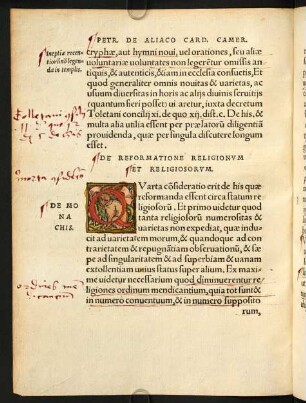 PETR. DE ALIACO CARD. CAMER.
Ineptiæ recen
tiorũ nõ legen
dæ in templis.
cryphæ, aut hymni noui, uel orationes, seu aliæ
uoluntariæ uoluntates non legerẽtur omissis an
tiquis, & autenticis, & iam in ecclesia consuetis, Et
quod generaliter omnis nouitas & uarietas, ac
usuum diuersitas in horis ac alijs diuinis seruitijs
(quantum fieri posset) ui taretur, iuxta decretum
Toletani concilij.xi. de quo.xij. dist. c. De his, &
multa alia utilia possent per prælatorũ diligentiã
prouidenda, quæ per singula discutere longum
esset.
DE REFORMATIONE RELIGIONVM
ET RELIGIOSORVM.
DE MO
NA
CHIS.
QVarta cõsideratio erit de his quæ
reformanda essent circa statum re
ligiosorũ, Et primo uidetur quod
tanta religiosorũ numerositas &
uarietas non expediat, quæ indu
cit ad uarietatem morum, & quandoque ad con
trarietatem & repugnãtiam obseruationũ, & sæ
pe ad singularitatem & ad superbiam & uanam
extollentiam unius status super alium. Ex maxi
me uidetur necessarium quod diminuerentur re
ligiones ordinum mendicantium, quia tot sunt &
in numero conuentuum, & in numero supposito
rum,